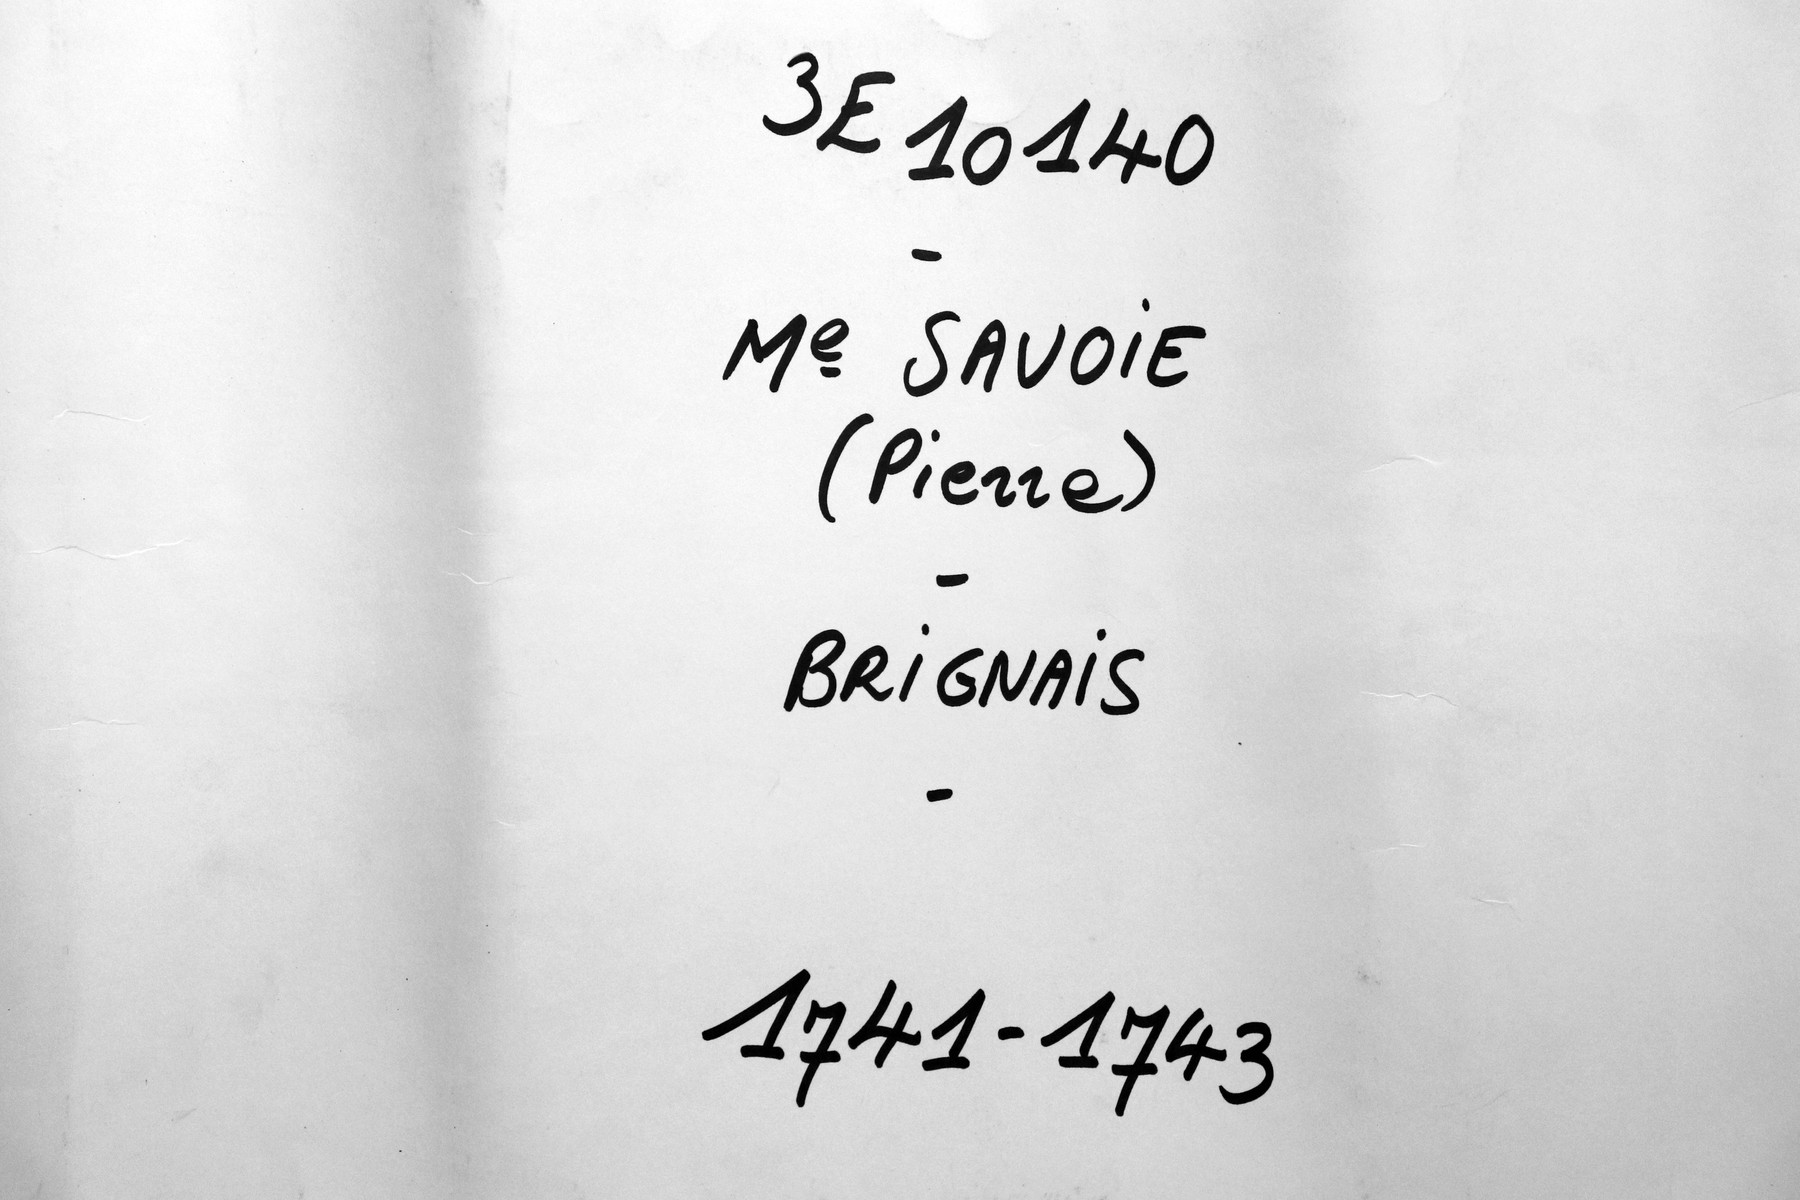 3E 10140
-
Me SAVOIE
(Pierre)
-
BRIGNAIS
-
1741-1743